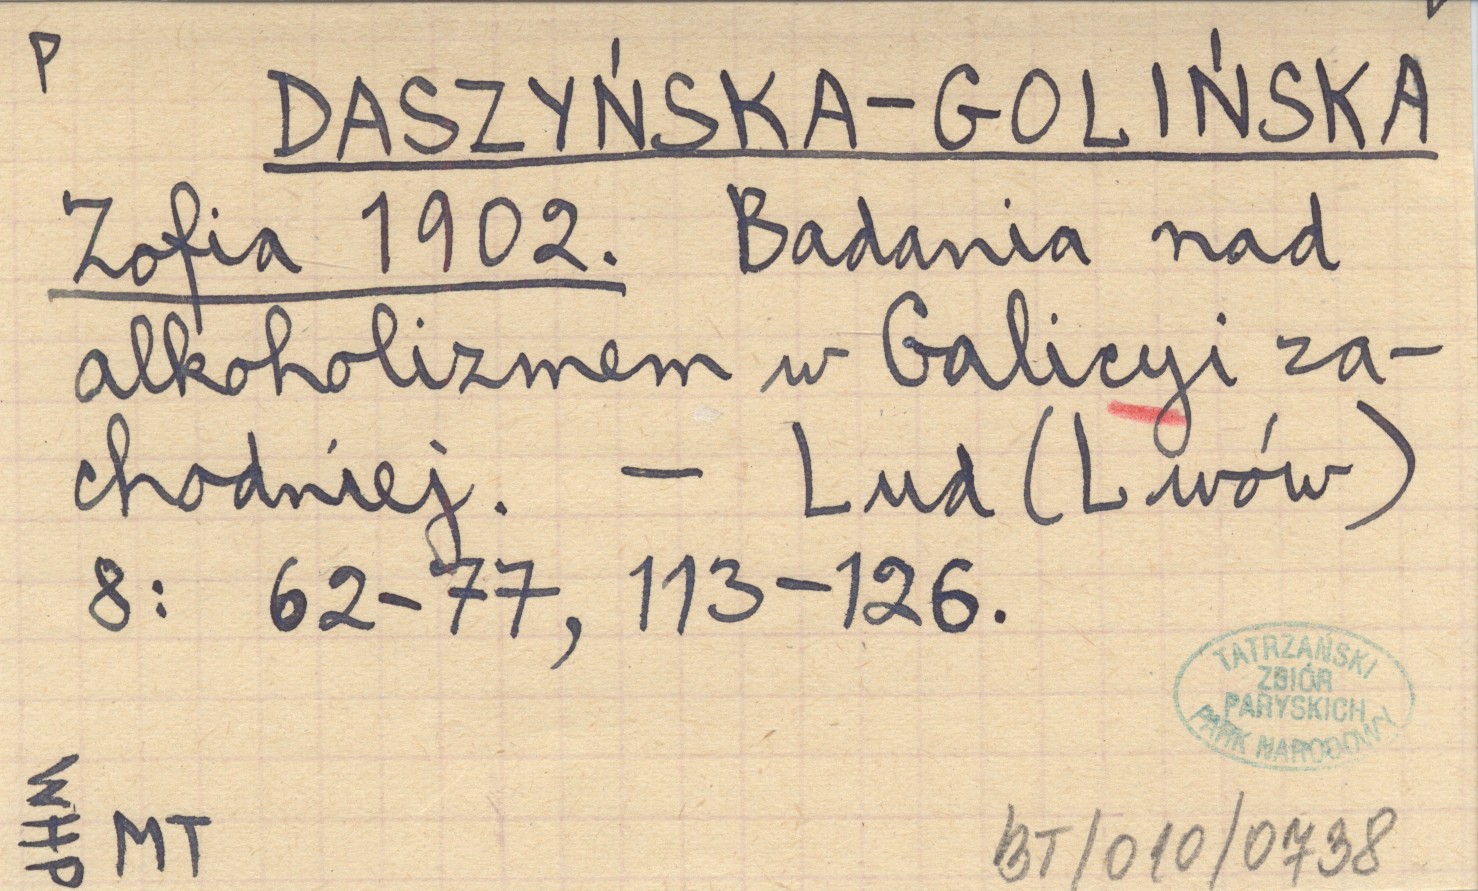 P
DASZYŃSKA-GOLIŃSKA
Zofia 1902. Badania nad
alkoholizmem w Galicyi za-
chodniej. — Lud (Lwów)
8: 62-77, 113-126.
TATRZAŃSKI
ZBIÓR
PARYSKICH
PARK NARODOWY
WHP
MT
BT/010/0738